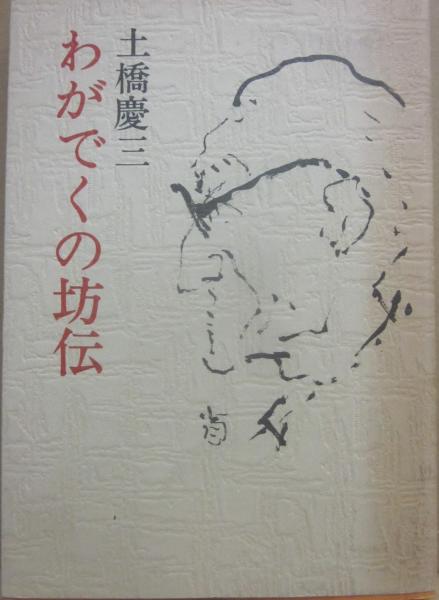 土橋慶三
わがでくの坊伝